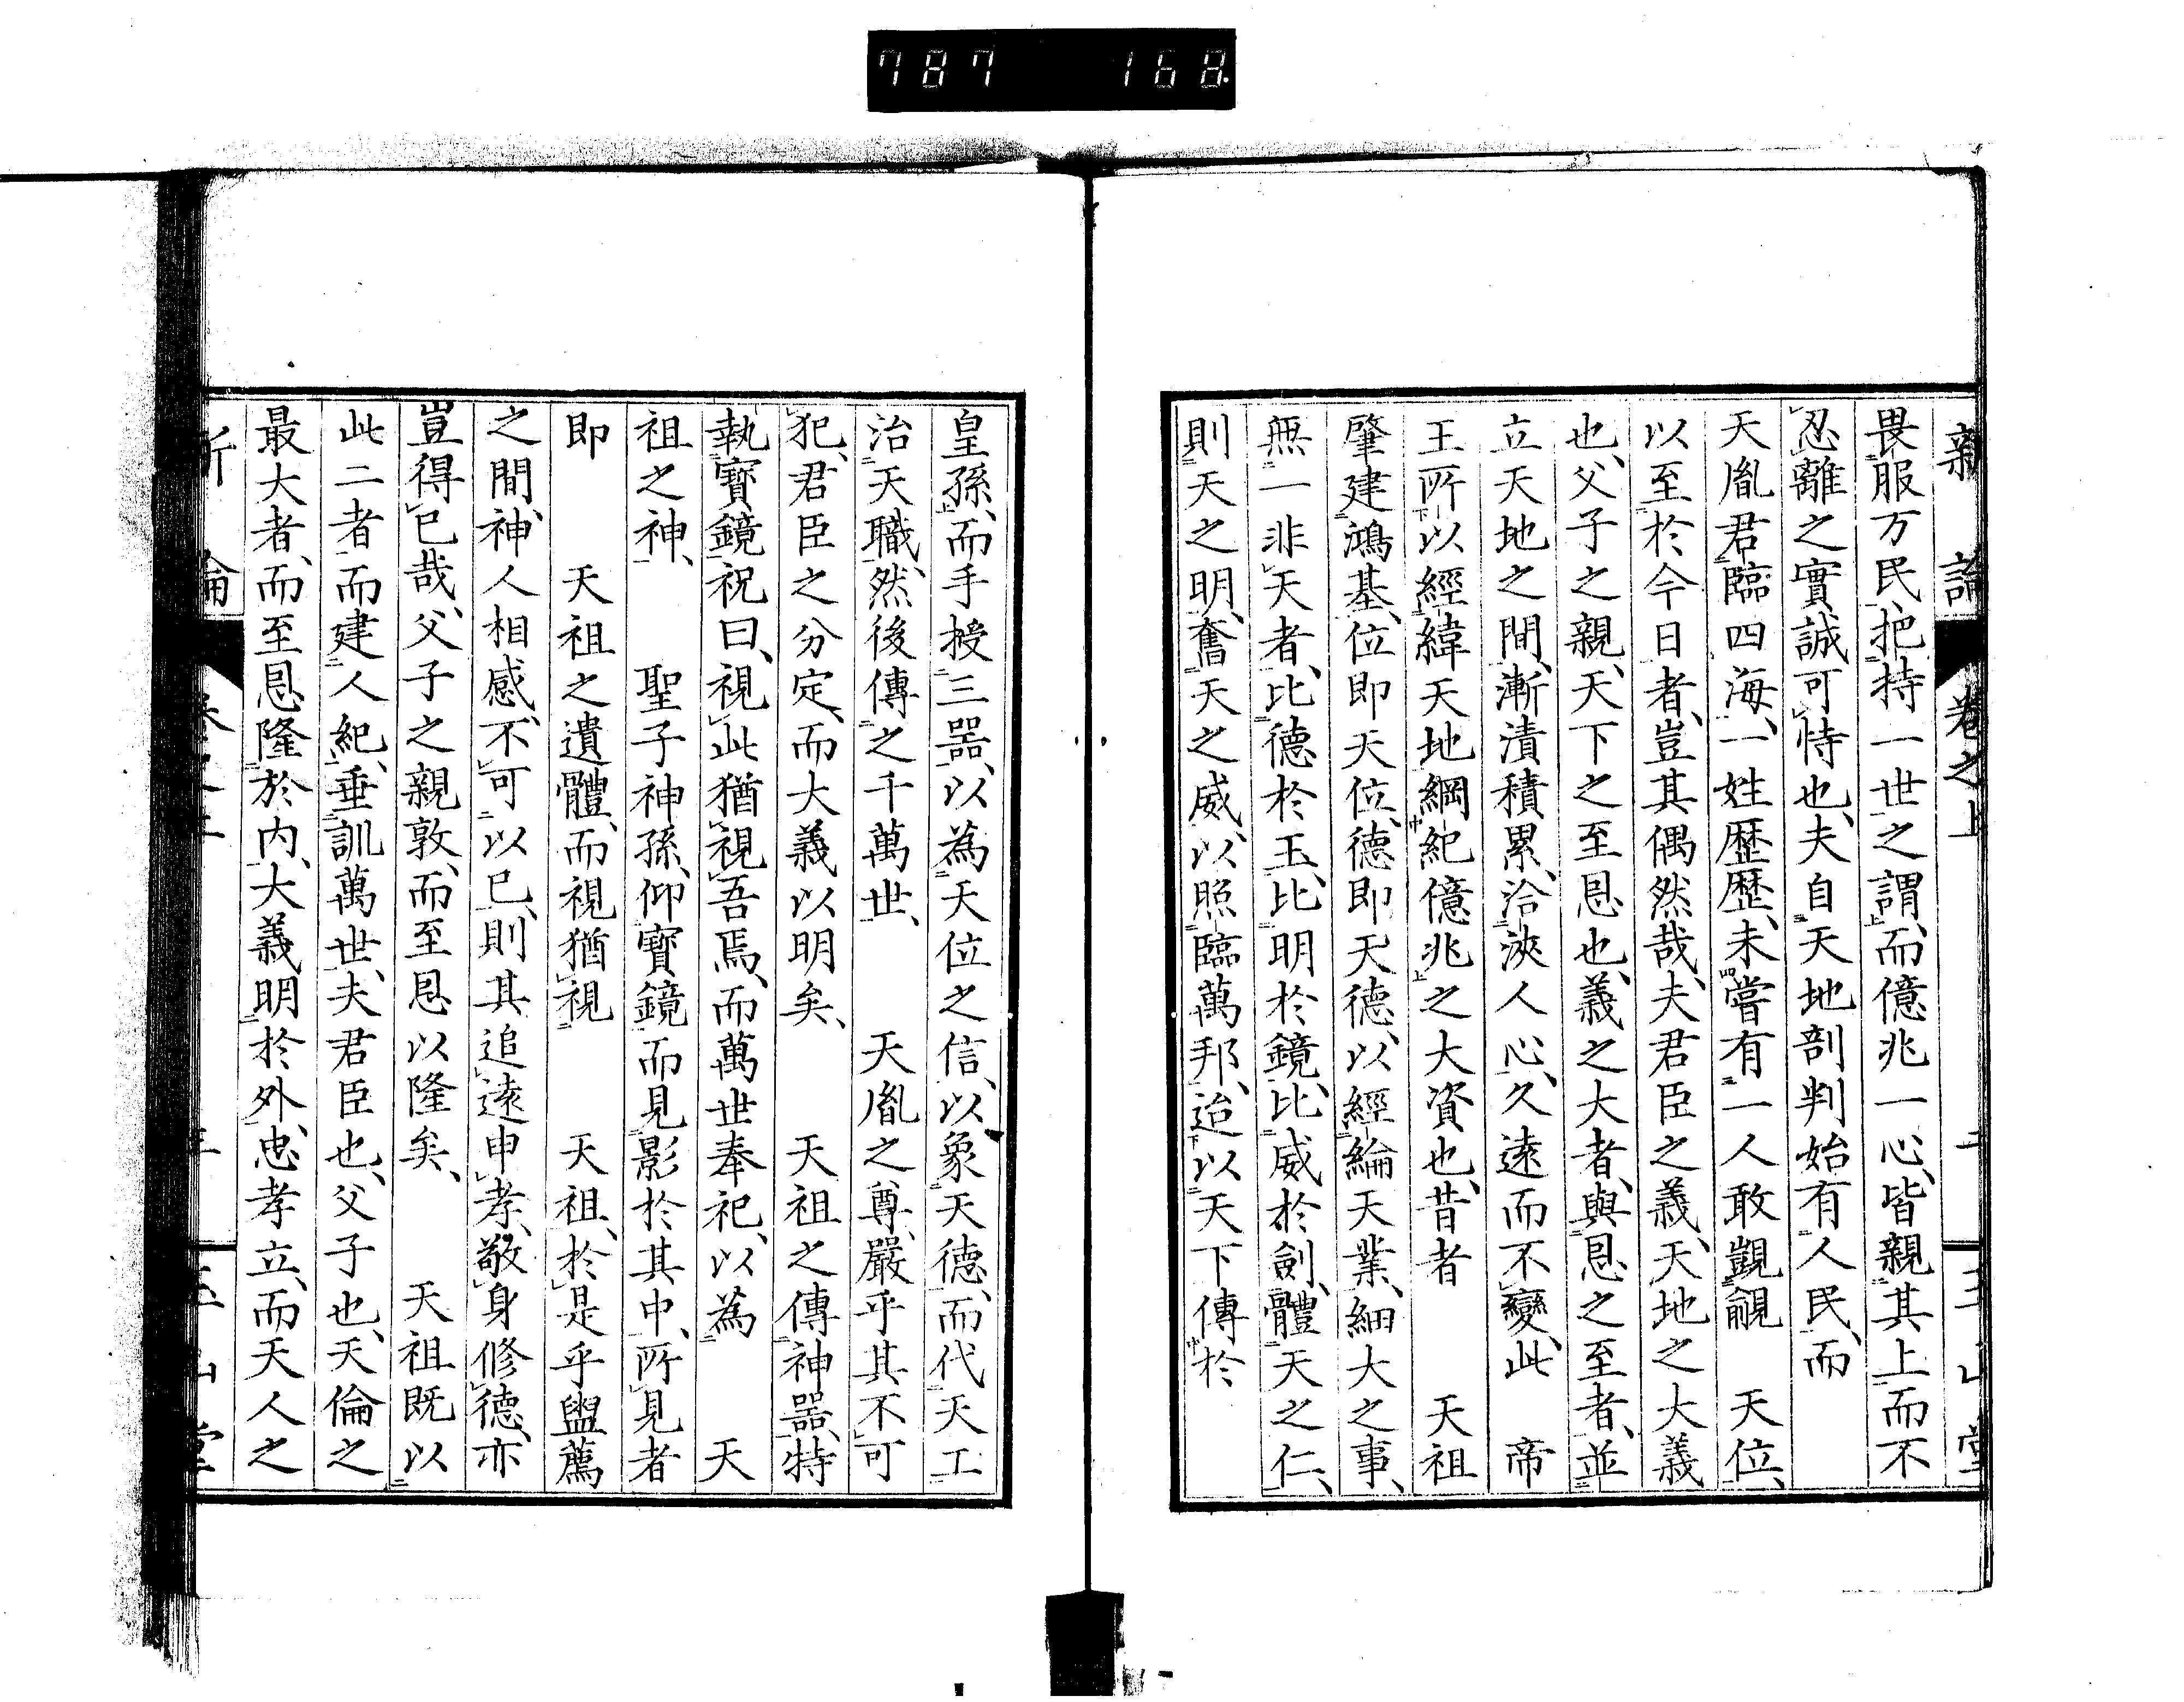 787 168
新論 卷之上 二 玉山堂
畏服万民、把持一世之謂、而億兆一心、皆親其上而不
忍離之實誠可恃也、夫自天地剖判始有人民、而
天胤君臨四海、一姓歷歷、未嘗有一人敢覬覦 天位、
以至於今日者、豈其偶然哉、夫君臣之義、天地之大義
也、父子之親、天下之至恩也、義之大者、與恩之至者、並
立天地之間、漸漬積累、洽浹人心、久遠而不變、此 帝
王所以經緯天地綱紀億兆之大資也、昔者 天祖
肇建鴻基、位即天位、德即天德、以經綸天業、細大之事、
無一非天者、比德於玉、比明於鏡、比威於劍、體天之仁、
則天之明、奮天之威、以照臨萬邦、迨以天下傳於
皇孫、而手授三器、以為天位之信、以象天德、而代天工
治天職、然後傳之千萬世、 天胤之尊、嚴乎其不可
犯、君臣之分定、而大義以明矣、 天祖之傳神器、特
執寶鏡祝曰、視此猶視吾焉、而萬世奉祀、以為 天
祖之神、 聖子神孫、仰寶鏡而見影於其中、所見者
即 天祖之遺體、而視猶視 天祖、於是乎盥薦
之間、神人相感、不可以已、則其追遠申孝、敬身修德、亦
豈得已哉、父子之親敦、而至恩以隆矣、 天祖既以
此二者而建人紀、垂訓萬世、夫君臣也、父子也、天倫之
最大者、而至恩隆於内、大義明於外、忠孝立、而天人之